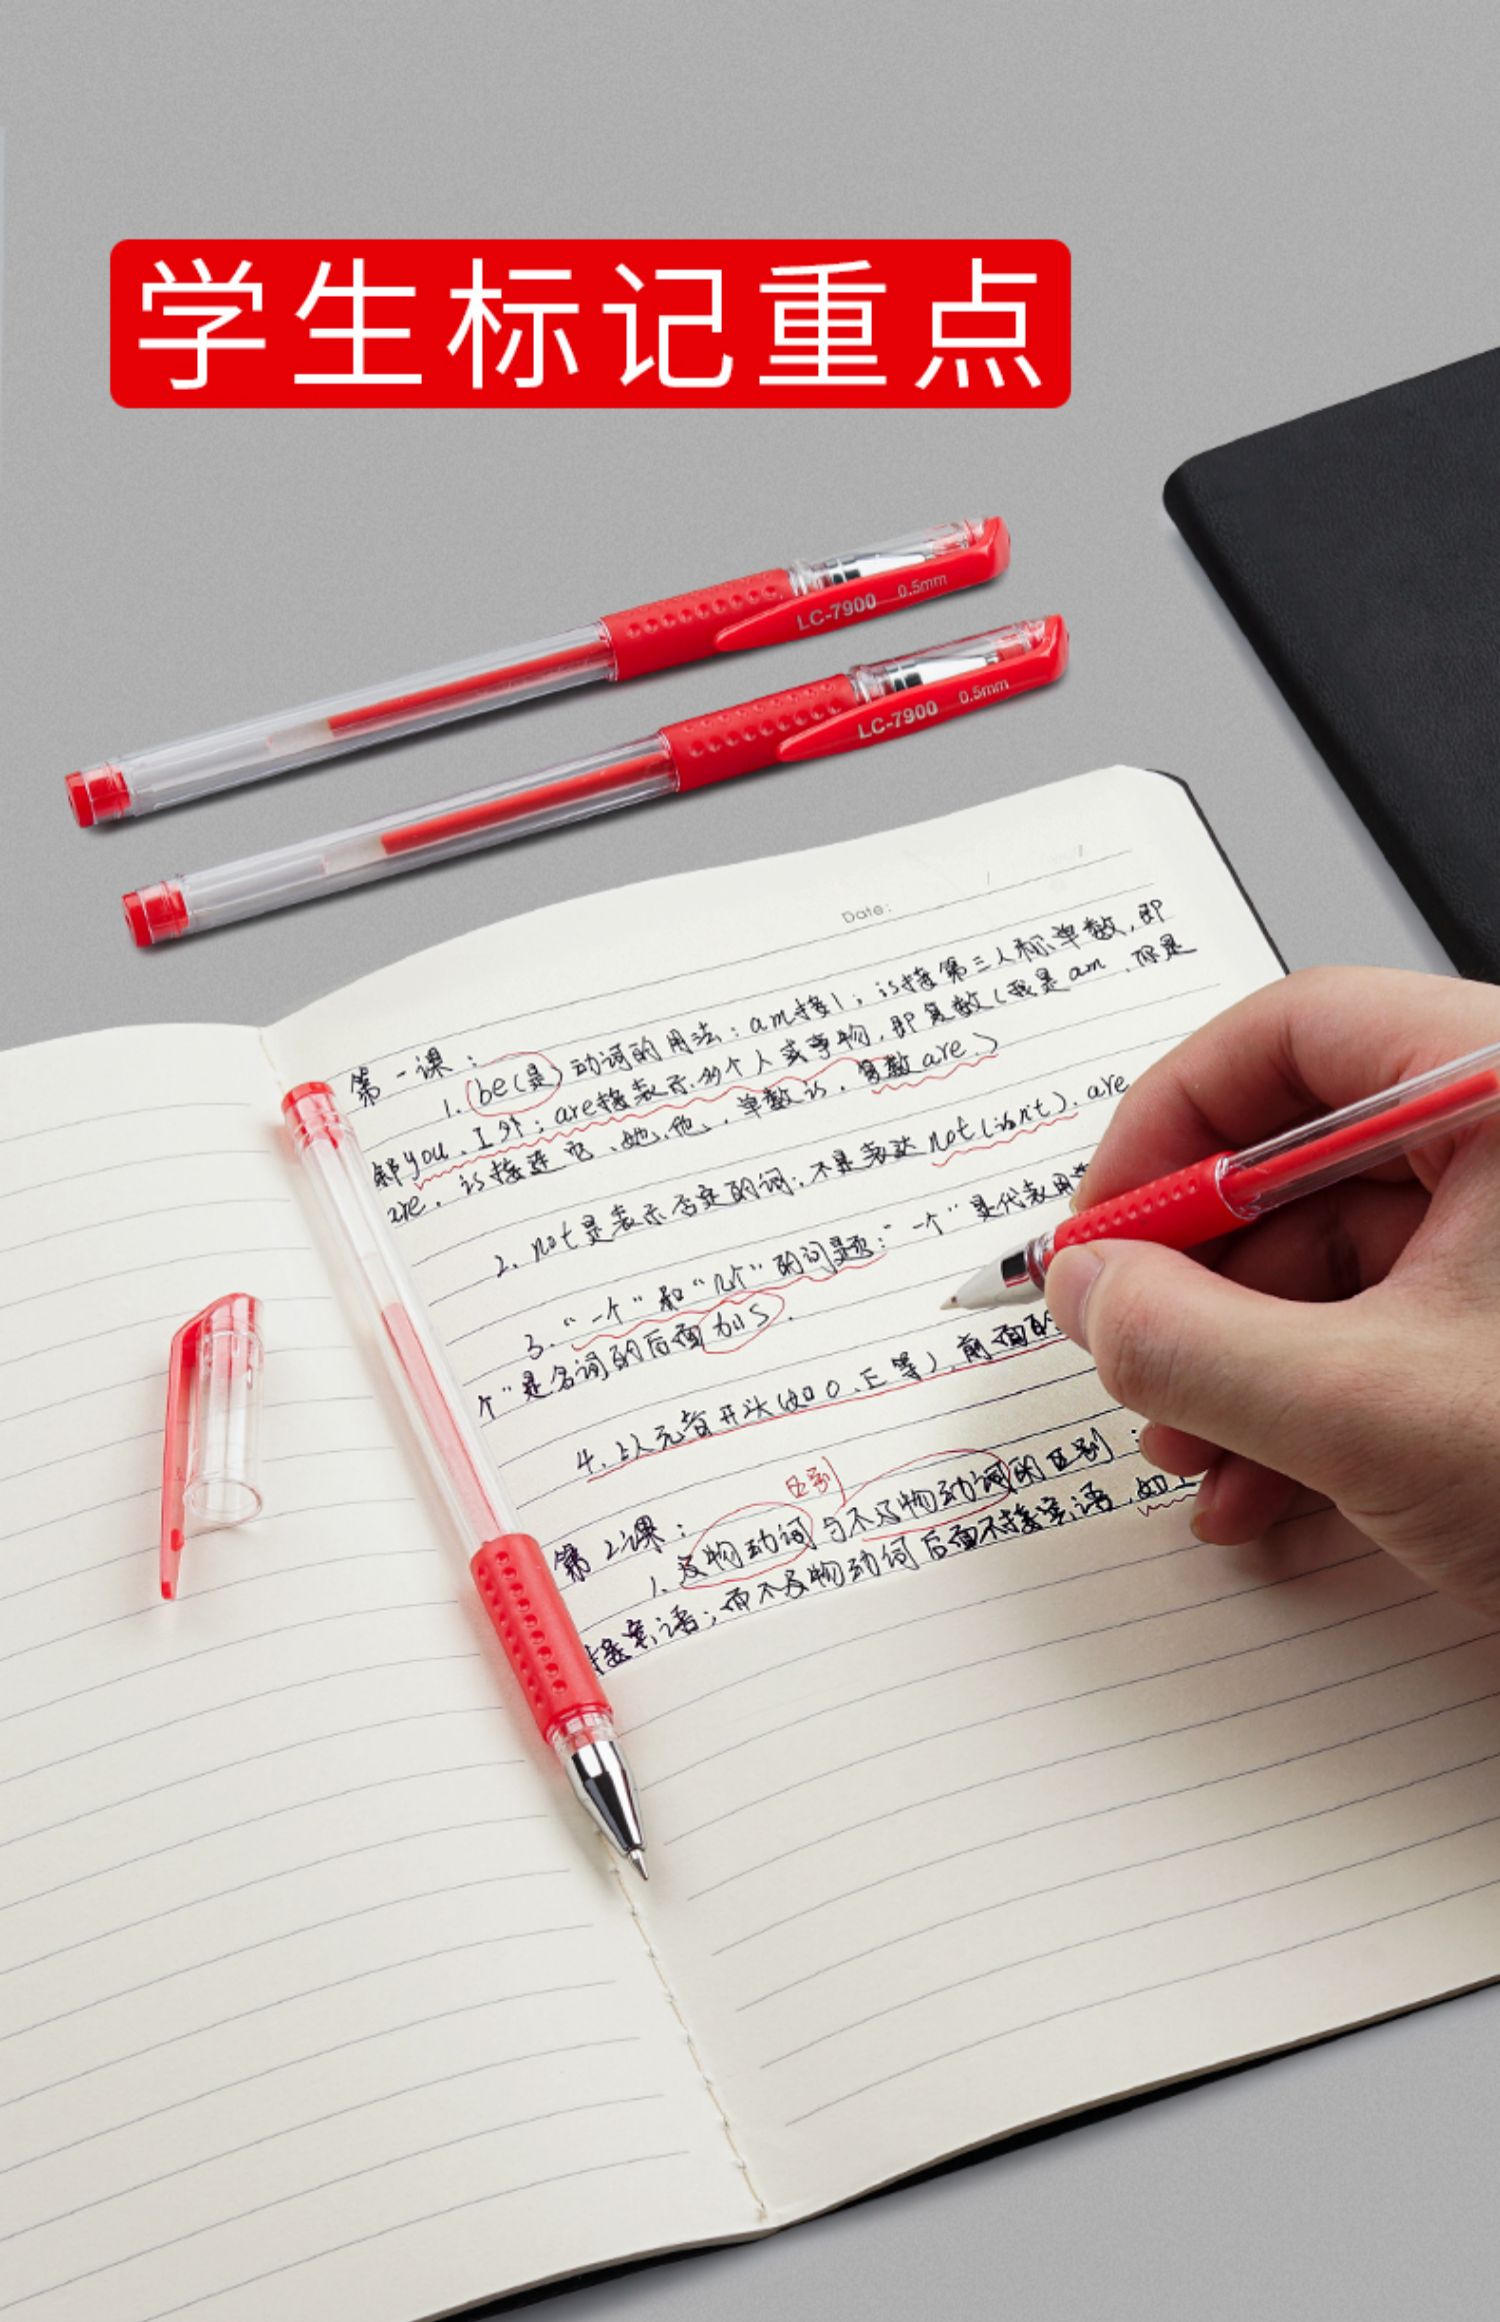 学生标记重点
LC-7900 0.5mm
LC-7900 0.5mm
Date:
第一课:
1. be(是)动词的用法:am接I;is接第三人称单数,即
除you、I外;are接表示多个人或事物,即复数(我是am,你是
are,is接连它、她、他,单数is,复数are.)
2. not是表示否定的词:不是表达not(isn't).are
3. "一个"和"几个"的问题:"一个"是代表用
个"是名词的后面加s.
4. 以元音开头(如O、E等),前面的
区别
第2课:
1. 及物动词与不及物动词的区别:
接宾语;而不及物动词后面不接宾语,如I